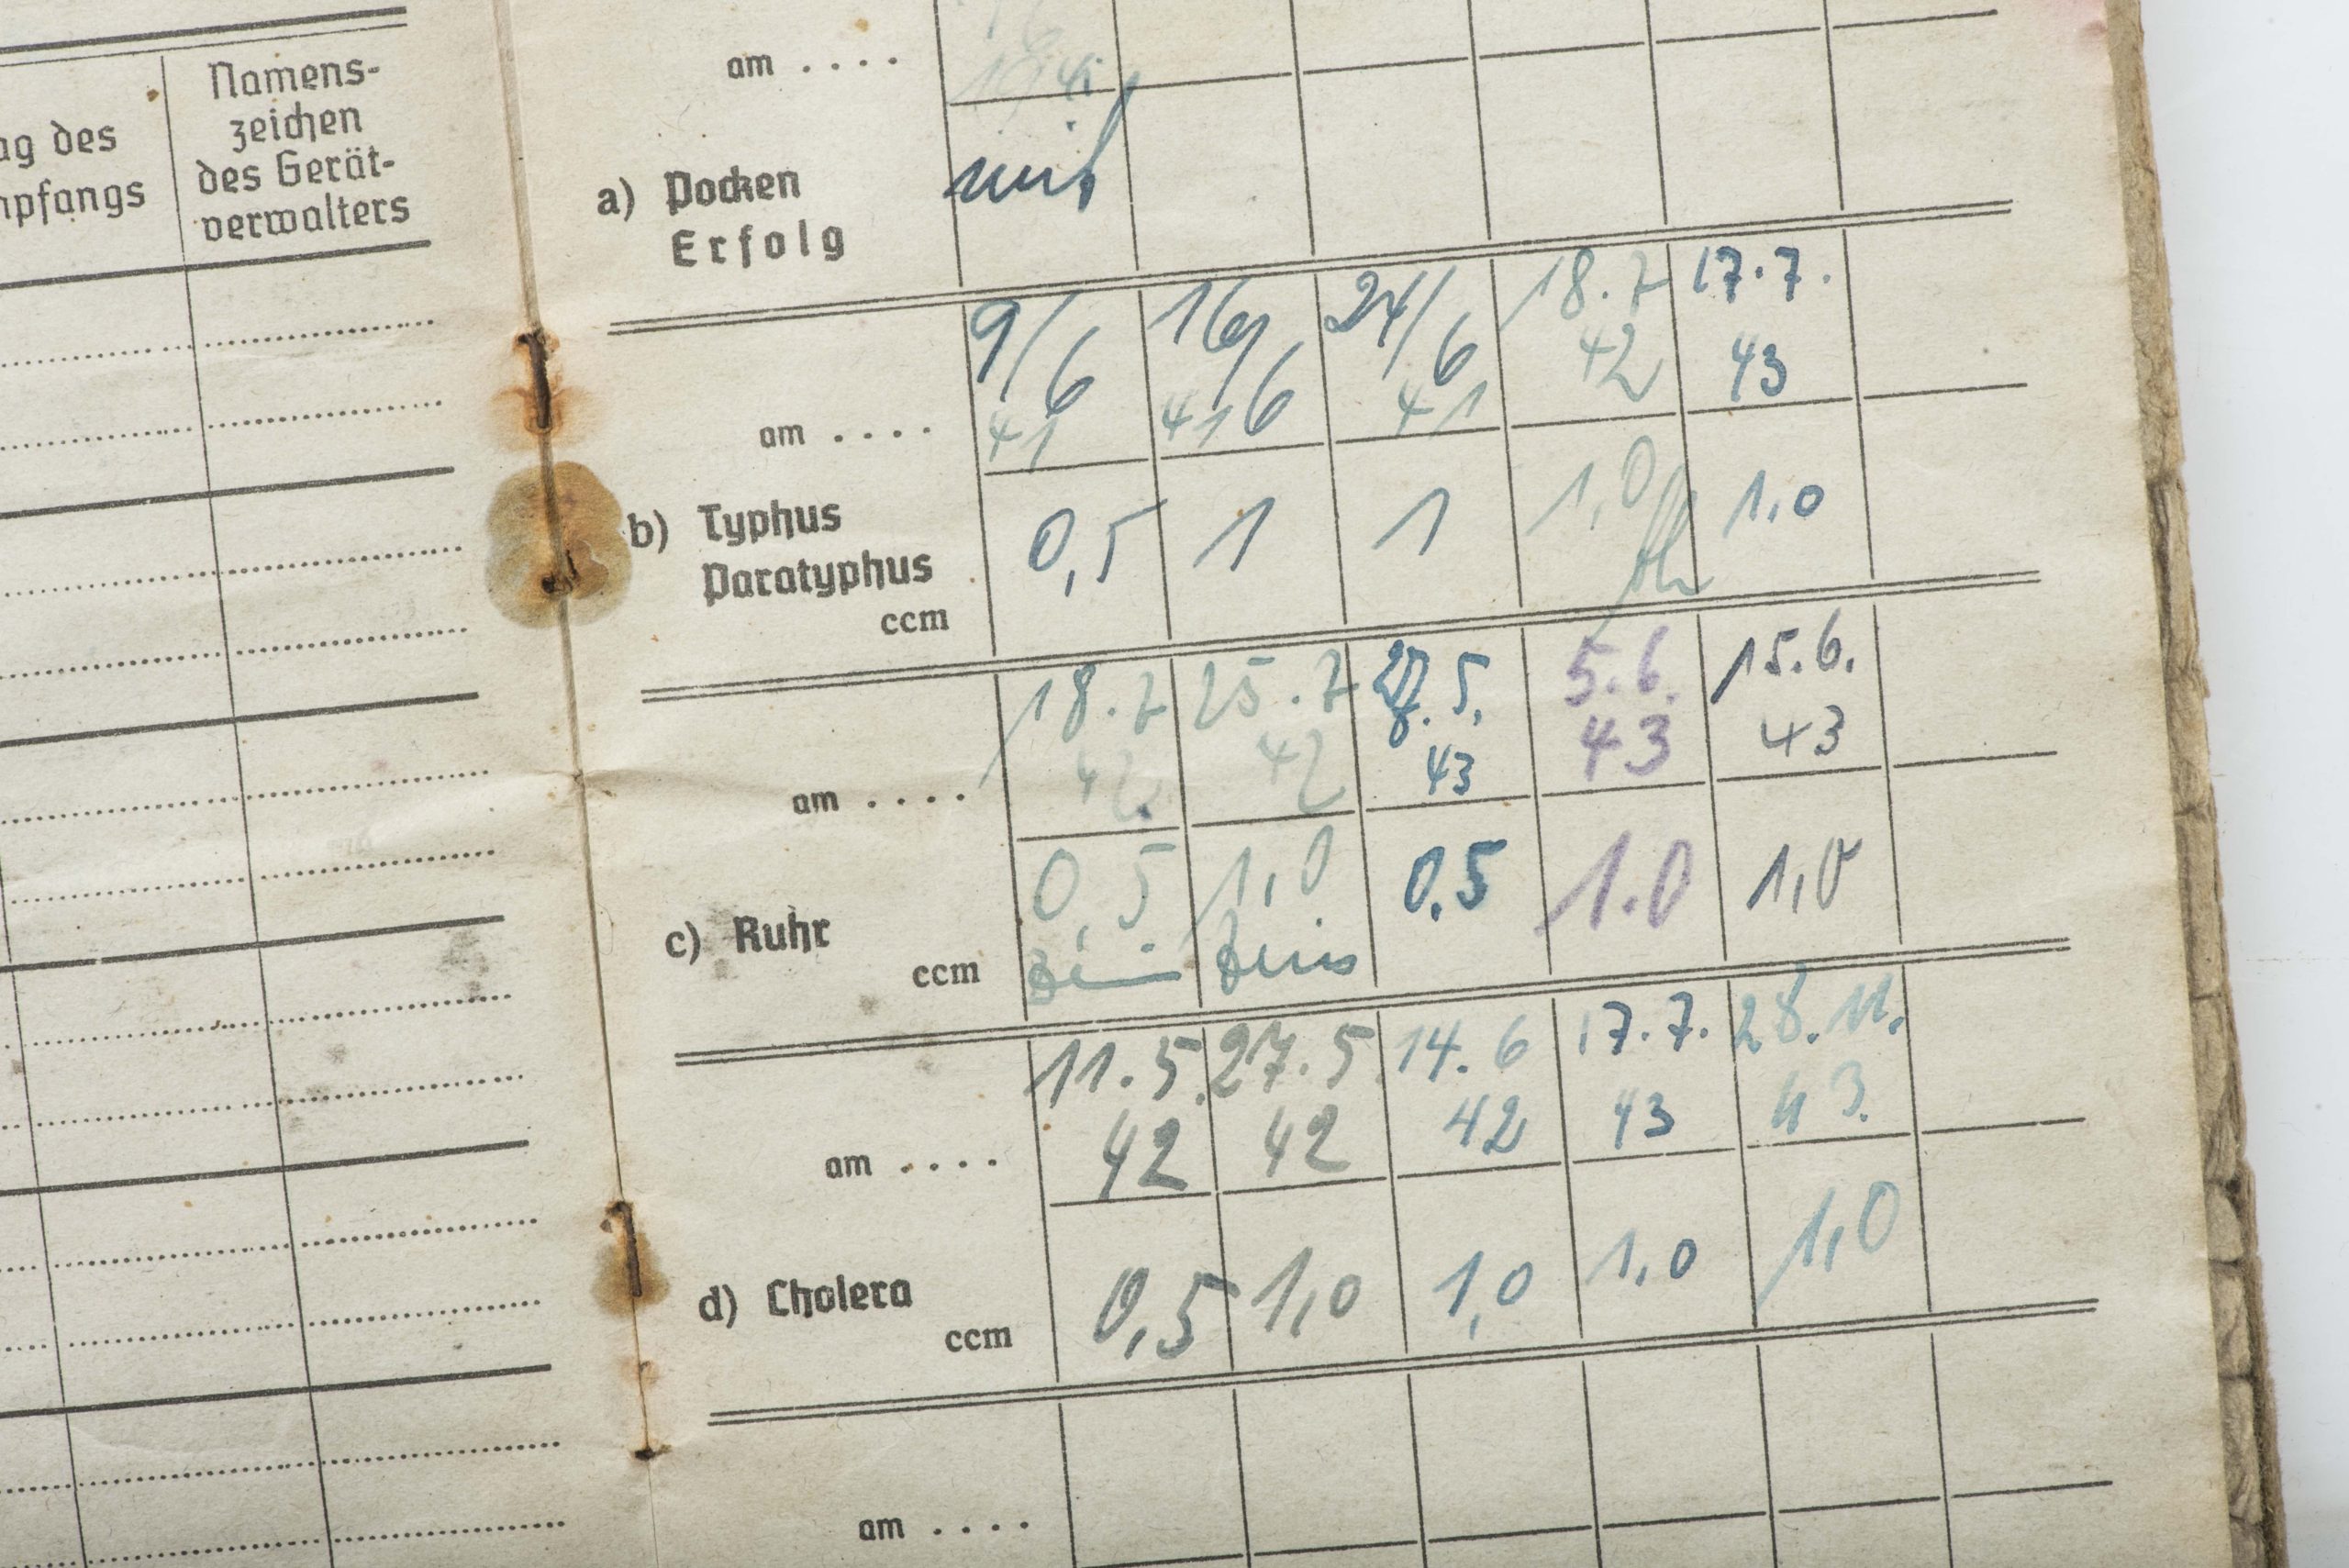 Namens-
zeichen
ag des
des Gerät-
npfangs
verwalters
am . . . .
a) Pocken
Erfolg
mit
9/6 16/6 24/6 18.7 17.7.
41 41 41 42 43
am . . . .
b) Typhus
Paratyphus
ccm
0,5 1 1 1,0 1,0
18.7 25.7 5. 5.6. 15.6.
42 42 43 43 43
am . . . .
c) Ruhr
ccm
0,5 1,0 0.5 1.0 1,0
11.5. 27.5 14.6 17.7. 28.11.
42 42 42 43 43.
am . . . .
d) Cholera
ccm
0,5 1,0 1,0 1,0 1,0
am . . . .